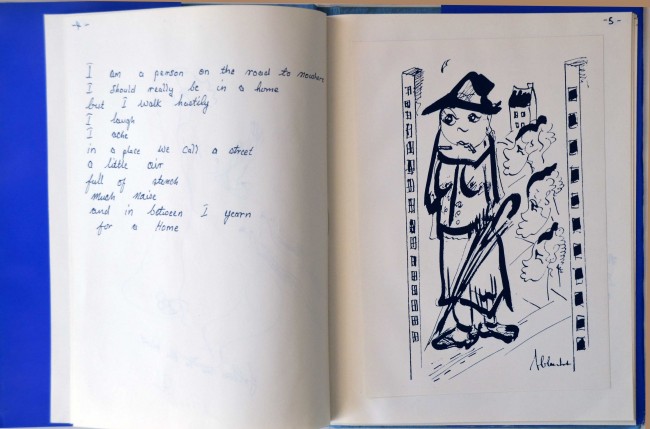 -4-
I am a person on the road to nowhere
I should really be in a home
but I walk hastily
I laugh
I ache
in a place we call a street
a little air
full of stench
much noise
and in between I yearn
for a Home
-5-